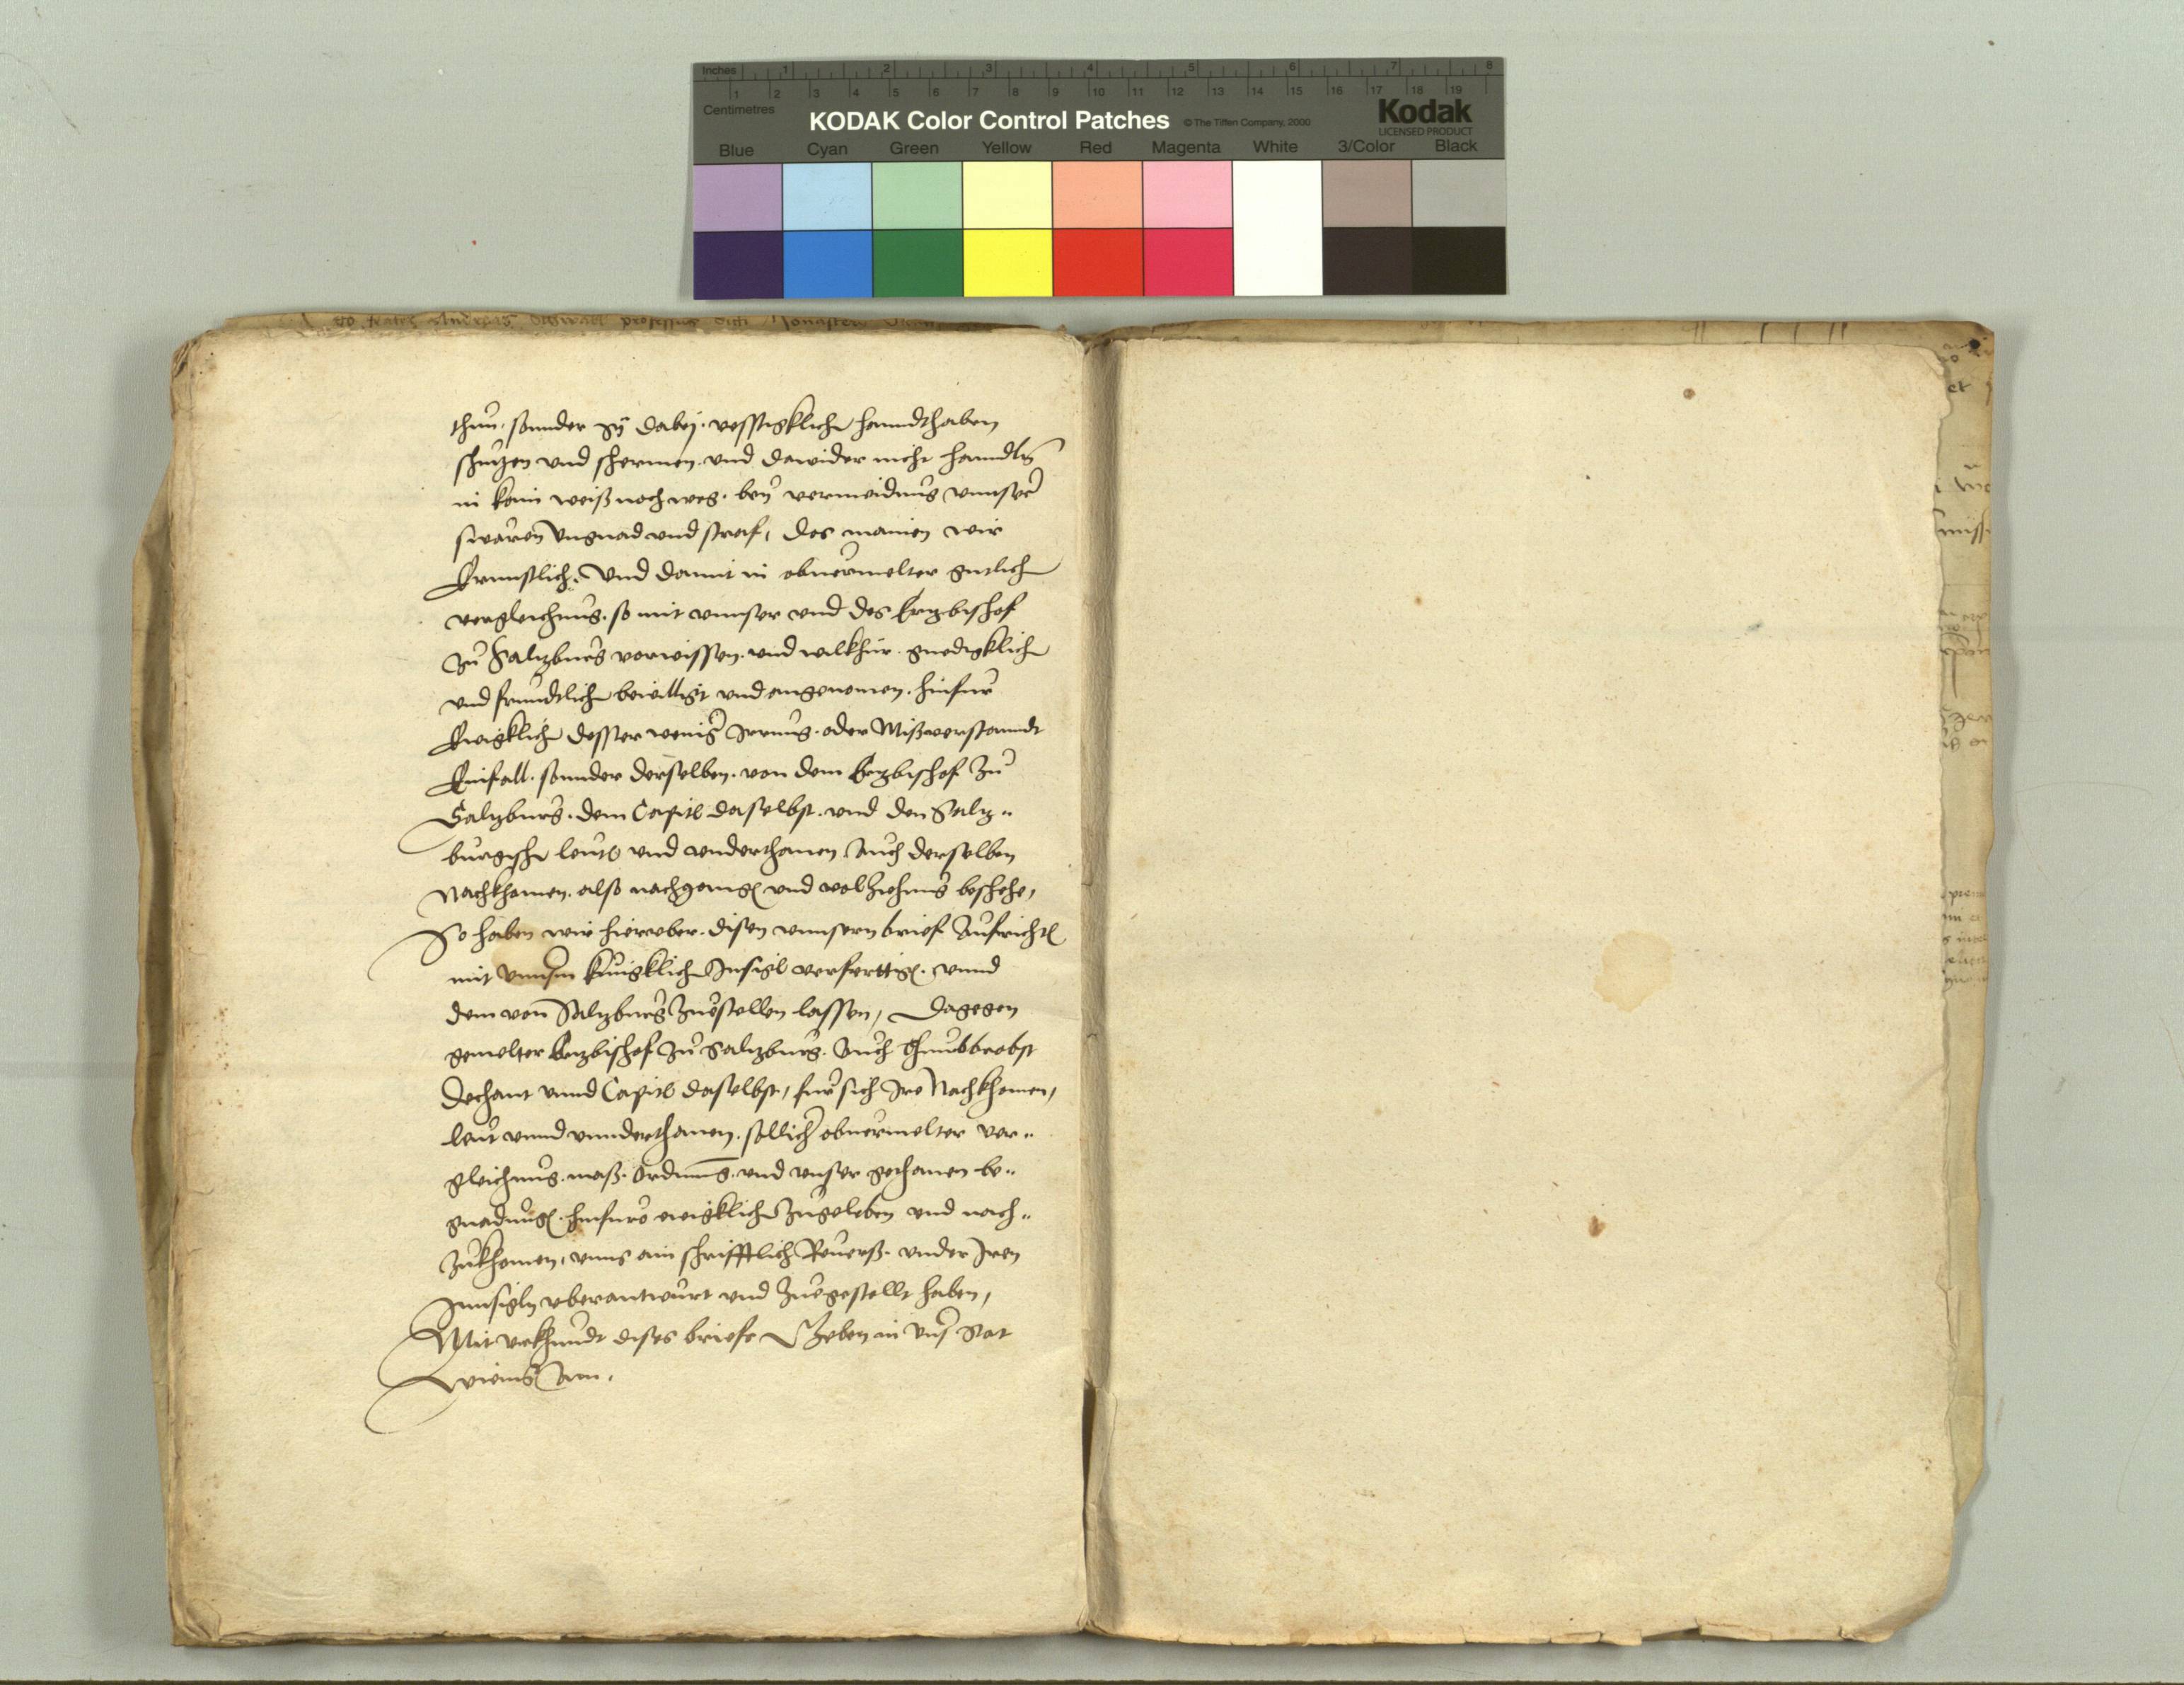 Inches 1 2 3 4 5 6 7 8
1 2 3 4 5 6 7 8 9 10 11 12 13 14 15 16 17 18 19
Centimetres
KODAK Color Control Patches © The Tiffen Company, 2000 Kodak
LICENSED PRODUCT
Blue Cyan Green Yellow Red Magenta White 3/Color Black
thun. sonnder sy dabej. vesstigkliche hanndthaben
schutzen und schermen. und dawider nicht hanndln
in kain weiß noch weg. bey vermeidung unnser
swären Ungnad und straf, des mainen wir
Ernnstlich. Und damit in obvermelter gutlich
vergleichnus. so mit unnser und des Ertzbischof
zu Saltzburg vorwissen. und wilkhür. gnedigklich
und freundtlich bewilligt und angenomen. hinfur
Ewigklich desster wenig Irrung. oder Mißverstanndt
Einfall. sonnder derselben. von dem Ertzbischof zu
Saltzburg. dem Capitl daselbst. und den Saltz„
burgische leuts und underthanen Auch derselben
Nachkhomen. also nachgeng und volziehung beschehe,
So haben wir hierober. disen unnsern brief Aufricht
mit unnserm kunigklich Insigl verferttig. unnd
dem von Saltzburg Zuestellen lassen, Dagegen
gemelter Ertzbischof zu Saltzburg. Auch Thumbbrobst
Dechant unnd Capitl daselbst, für sich Ire Nachkhomen,
leut unnd unnderthanen. sollich obvermelter ver„
gleichnus. maß. Ordnung. und unser gethanen be„
gnadung. hinfuro ewigklich zugeleben und nach„
zukhomen, unns ain schrifftlich Reverß. under Iren
Innsigln uberantwurt und Zuegestellt haben,
Mit urkhundt dises briefs Geben in unser Stat
Wienn Am.